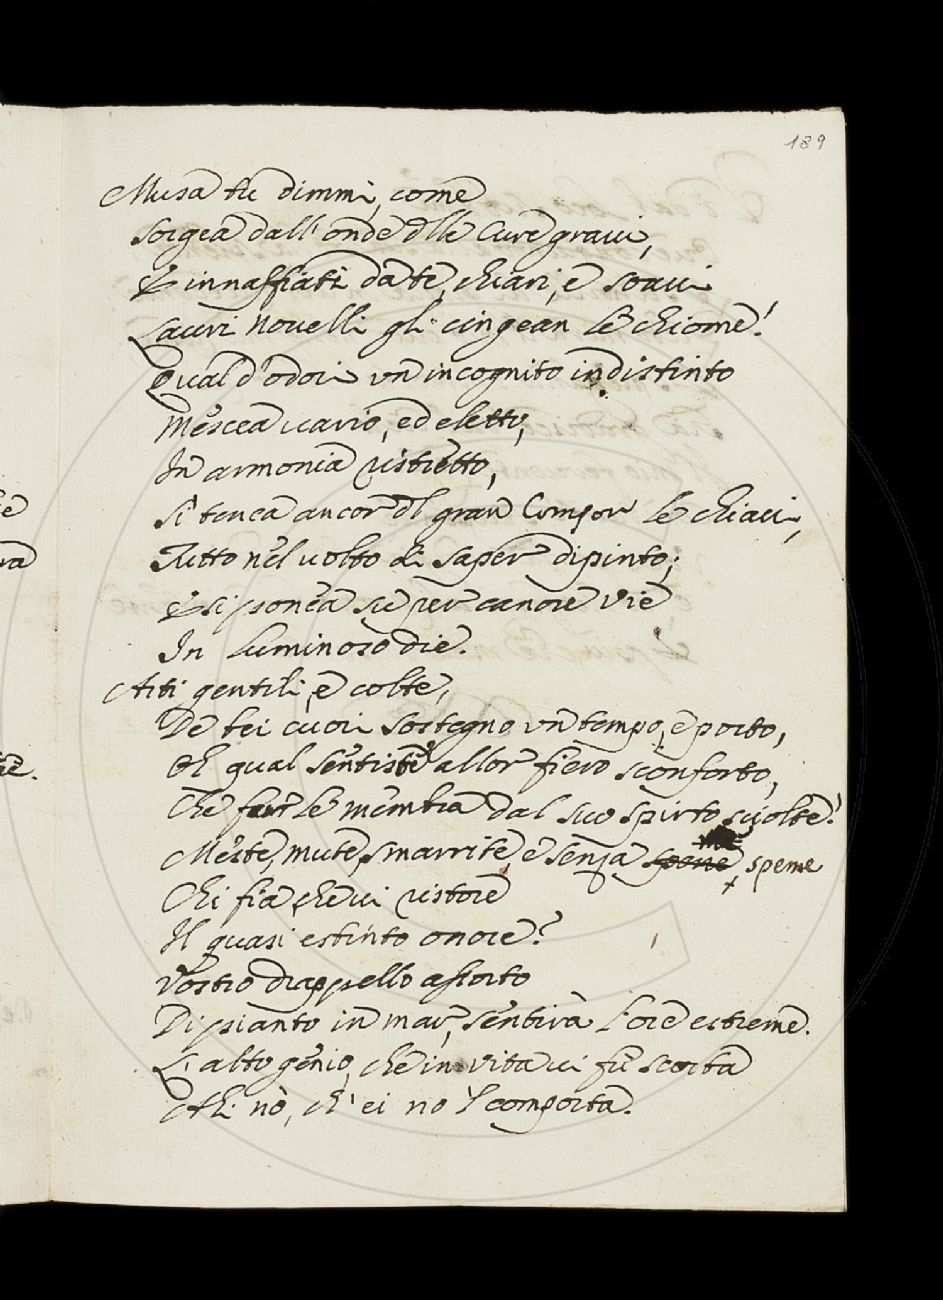 189
Musa tu dimmi, come
sorgea dall' onde dlle Cure gravi,
E innaffiati da te, chiari, e soavi
Lauri novelli gli cingean le chiome!
Qual d'odori un incognito indistinto
Mescea vario, ed eletto,
In armonia ristretto,
Si tenea ancor dl gran Compor le chiavi,
Tutto nel volto di saper dipinto;
E si ponea su per canore vie
In luminoso die.
Arti gentili, e colte,
De bei cuori sostegno un tempo, e porto,
Oh qual sentiste allor fiero sconforto,
Che fur le membra dal suo spirto sciolte!
Meste, mute, smarrite, e senza speme
Chi fia, che vi ristore
Il quasi estinto onore?
Vostro drappello assorto
Di pianto in mar, sentirà l'ore estreme.
L'alto genio, che in vita vi fù scorta
Ah nò, ch' ei no 'l comporta.